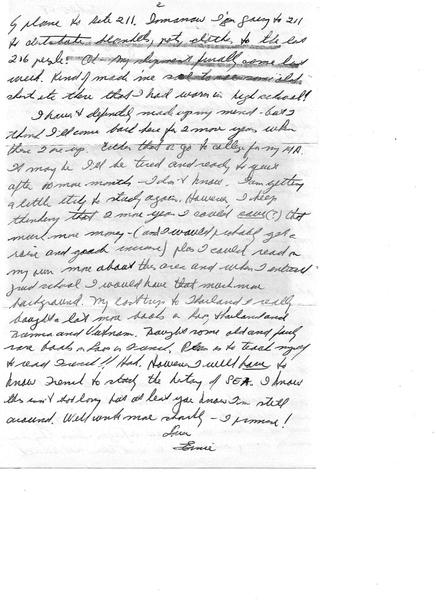 2
by plane to site 211. Tomorrow I'm going to 211
to distribute blankets, pots, cloths, to the last
216 people. Oh - My shipment finally came last
week. Kind of made me
skirt etc there that I had worn in high school!
I haven't definitely made up my mind - but I
think I'll come back here for 2 more years when
these 2 are up. Either that or go to college for my MA.
It may be I'll be tired and ready to quit
after 10 more months - I don't know. I am getting
a little itchy to study again. However I keep
thinking that 2 more years I could save (?) that
much more money - (and I would probably get a
raise and grade increase) plus I could read on
my own more about the area and when I entered
grad school I would have that much more
background. My last trip to Thailand I really
bought a lot more books on Laos, Thailand and
Burma and Vietnam. Bought some old and fairly
rare books on Laos in French. Plan is to teach myself
to read French!! Hah. However I will have to
know French to study the history of SEA. I know
this isn't too long but at least you know I'm still
around. Will write more shortly - I promise!
Love
Ernie